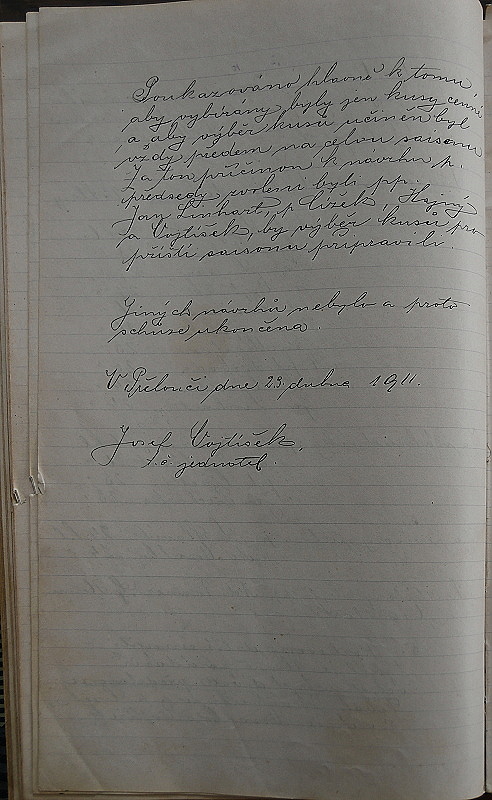 Poukazováno hlavně k tomu
aby vybírány byly jen kusy cenné
a aby výběr kusů učiněn byl
vždy předem na celou saisonu
Za tou příčinou k návrhu p.
předsedy zvoleni byli pp.
Jan Linhart, p Čížek, Hajný
a Vojtíšek, by výběr kusů pro
příští saisonu připravili.
Jiných návrhů nebylo a proto
schůze ukončena.
V Přelouči dne 23. dubna 1911.
Josef Vojtíšek,
t. č. jednatel.